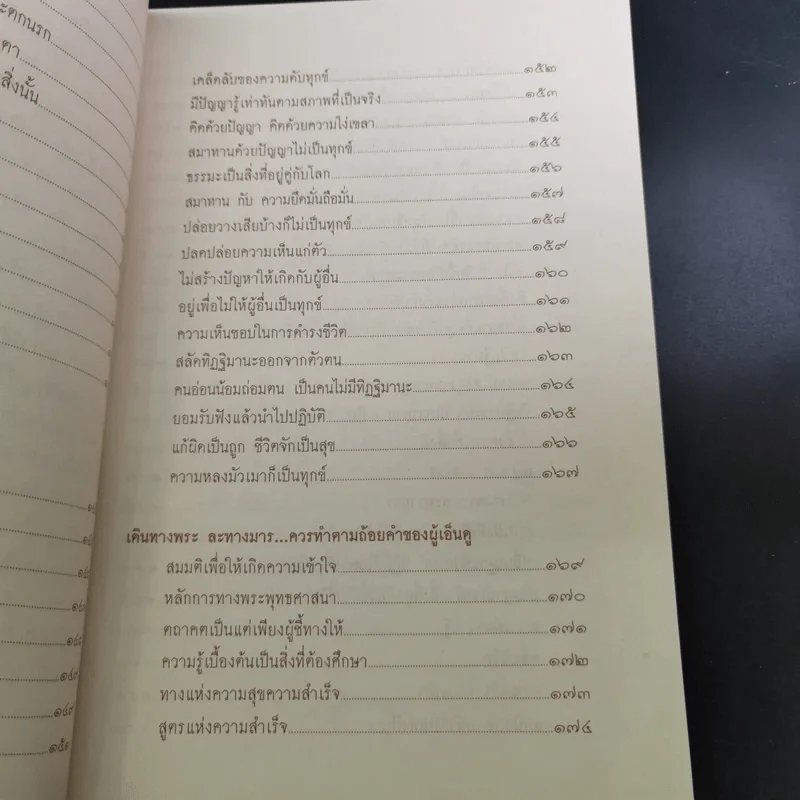 ะตกนรก
ตา
สิ่งนั้น
เคล็ดลับของความดับทุกข์ ๑๕๒
มีปัญญารู้เท่าทันตามสภาพที่เป็นจริง ๑๕๓
คิดด้วยปัญญา คิดด้วยความโง่เขลา ๑๕๔
สมาทานด้วยปัญญาไม่เป็นทุกข์ ๑๕๕
ธรรมะเป็นสิ่งที่อยู่คู่กับโลก ๑๕๖
สมาทาน กับ ความยึดมั่นถือมั่น ๑๕๗
ปล่อยวางเสียบ้างก็ไม่เป็นทุกข์ ๑๕๘
ปลดปล่อยความเห็นแก่ตัว ๑๕๙
ไม่สร้างปัญหาให้เกิดกับผู้อื่น ๑๖๐
อยู่เพื่อไม่ให้ผู้อื่นเป็นทุกข์ ๑๖๑
ความเห็นชอบในการดำรงชีวิต ๑๖๒
สลัดทิฏฐิมานะออกจากตัวตน ๑๖๓
คนอ่อนน้อมถ่อมตน เป็นคนไม่มีทิฏฐิมานะ ๑๖๔
ยอมรับฟังแล้วนำไปปฏิบัติ ๑๖๕
แก้ผิดเป็นถูก ชีวิตจักเป็นสุข ๑๖๖
ความหลงมัวเมาก็เป็นทุกข์ ๑๖๗
เดินทางพระ ละทางมาร...ควรทำตามถ้อยคำของผู้เอ็นดู
สมมติเพื่อให้เกิดความเข้าใจ ๑๖๙
หลักการทางพระพุทธศาสนา ๑๗๐
ตถาคตเป็นแต่เพียงผู้ชี้ทางให้ ๑๗๑
ความรู้เบื้องต้นเป็นสิ่งที่ต้องศึกษา ๑๗๒
ทางแห่งความสุขความสำเร็จ ๑๗๓
สูตรแห่งความสำเร็จ ๑๗๔